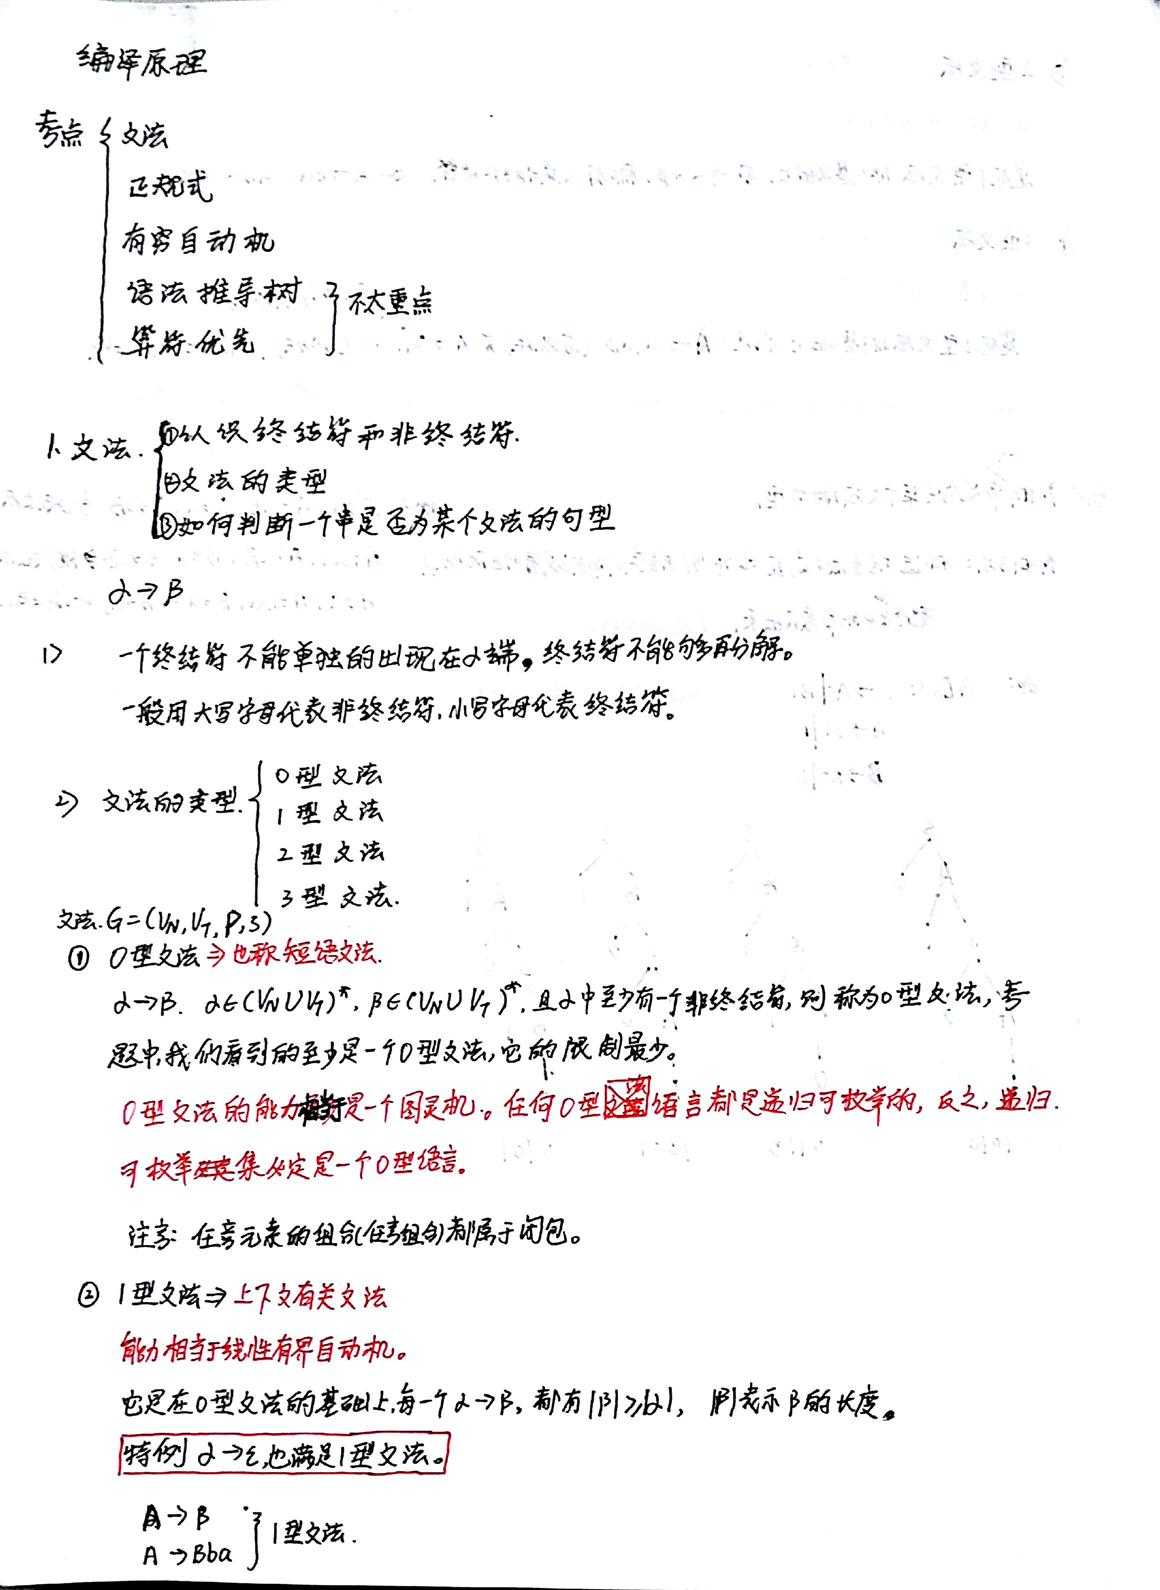 编译原理
考点 { 文法
正规式
有穷自动机
语法推导树
算符优先 } 不太重点
1、文法. { ①认识终结符和非终结符.
②文法的类型
③如何判断一个串是否为某个文法的句型
α→β
1> 一个终结符不能单独的出现在α端。终结符不能够再分解。
一般用大写字母代表非终结符,小写字母代表终结符。
2> 文法的类型. { 0型文法
1型文法
2型文法
3型文法.
文法.G=(VN,VT,P,S)
① 0型文法⇒也称短语文法.
α→β. α∈(VN∪VT)*, β∈(VN∪VT)*, 且α中至少有一个非终结符, 则称为0型文法, 考
题中,我们看到的至少是一个0型文法,它的限制最少。
0型文法的能力相当于是一个图灵机。任何0型语言都是递归可枚举的, 反之, 递归
可枚举集必定是一个0型语言。
注意: 任意元素的组合(任意组合)都属于闭包。
② 1型文法⇒上下文有关文法
能力相当于线性有界自动机。
它是在0型文法的基础上,每一个α→β, 都有|β|≥|α|, |β|表示β的长度。
特例 α→ε,也满足1型文法。
A→β
A→Bba } 1型文法.